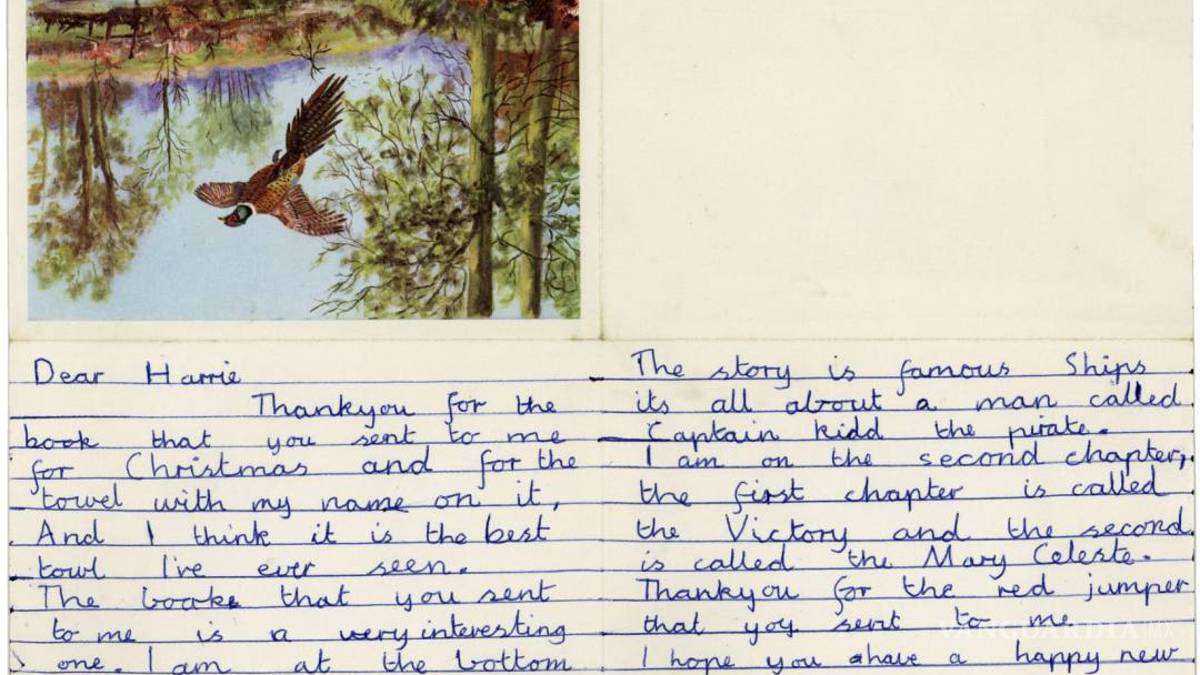 Dear Harrie
Thankyou for the
book that you sent to me
for Christmas and for the
towel with my name on it,
And I think it is the best
towl I've ever seen.
The booke that you sent
to me is a very interesting
one. I am at the bottom
The story is famous Ships
its all about a man called
Captain kidd the pirate.
I am on the second chapter,
the first chapter is called
the Victory and the second
is called the Mary Celeste.
Thankyou for the red jumper
that yoy sent to me
I hope you ahave a happy new
VANGUARDIA MX